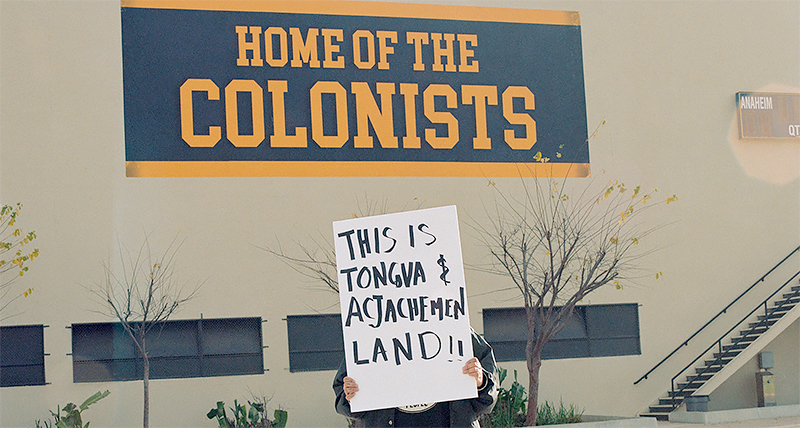 HOME OF THE
COLONISTS
ANAHEIM
QT
THIS IS
TONGVA &
ACJACHEMEN
LAND!!
PEOPLE